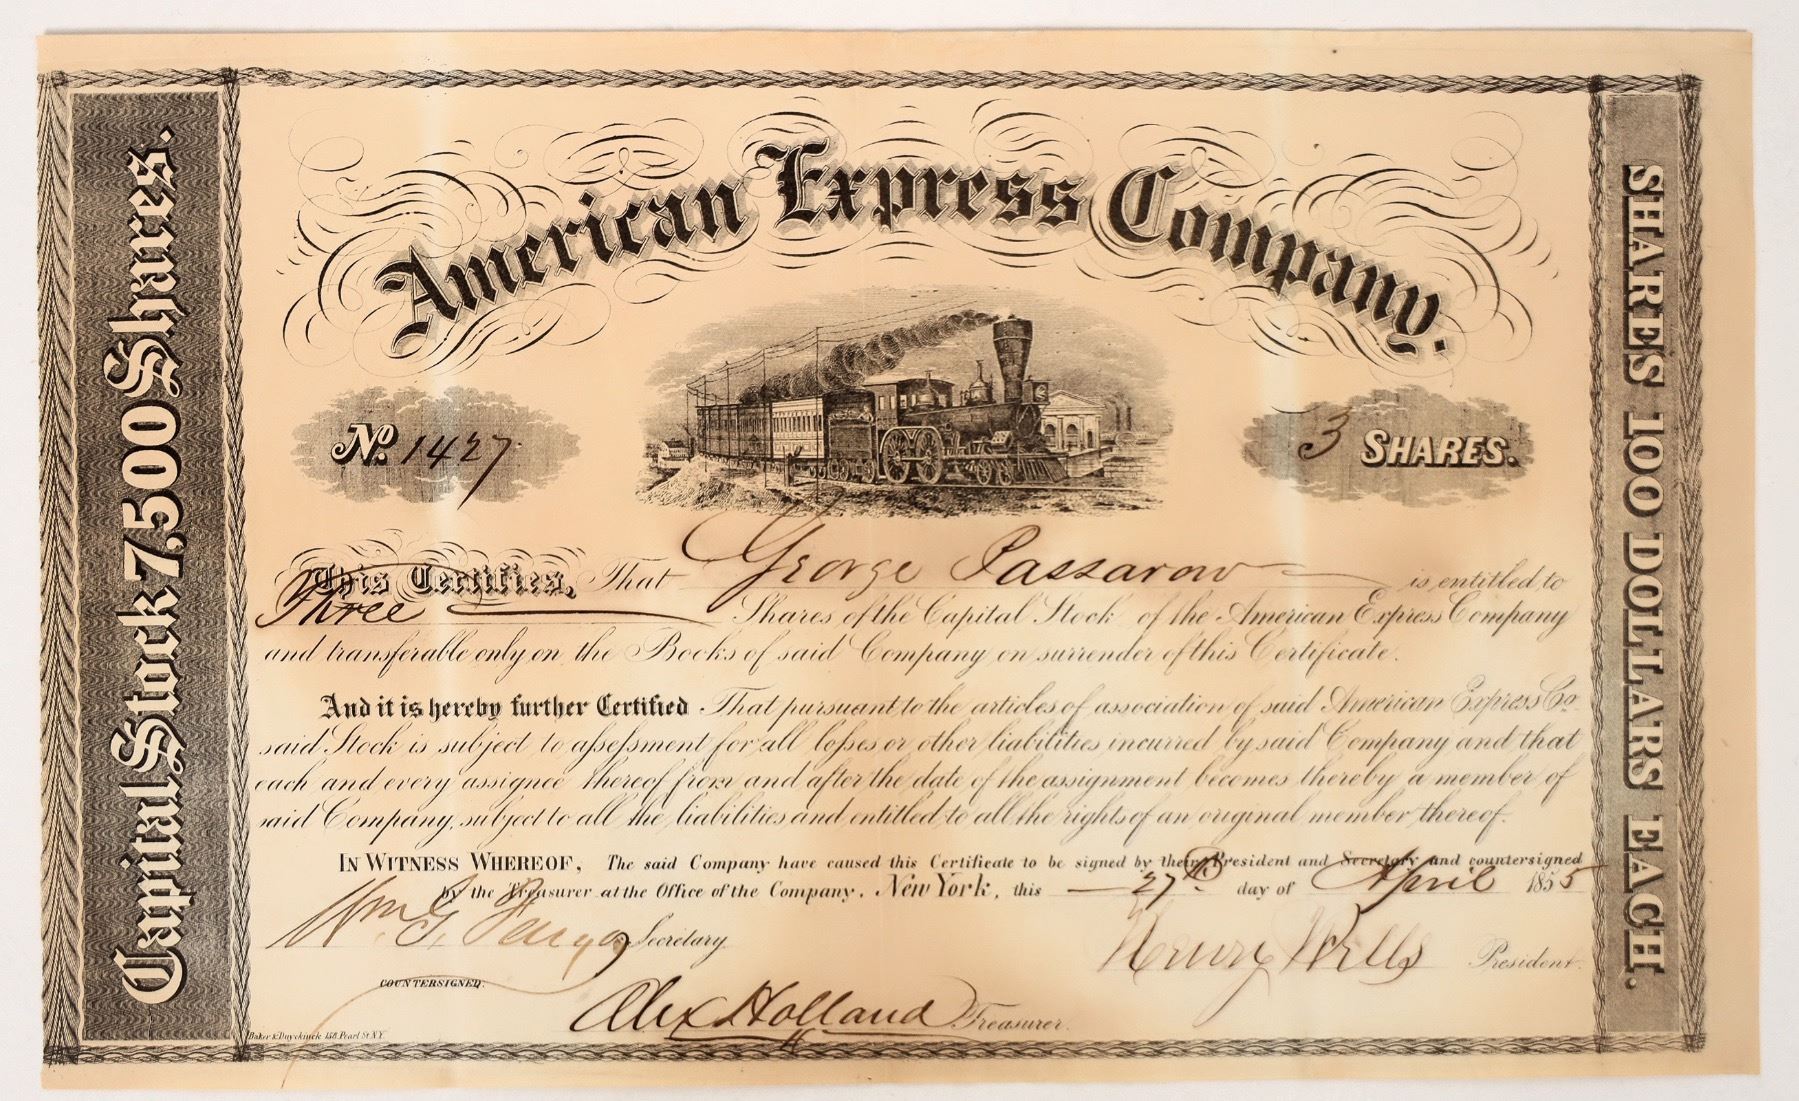 American Express Company.
Capital Stock 7,500 Shares.
SHARES 100 DOLLARS EACH.
No. 1427.
3 SHARES.
This Certifies, That George Passarow is entitled to
Three Shares of the Capital Stock of the American Express Company
and transferable only on the Books of said Company on surrender of this Certificate.
And it is hereby further Certified That pursuant to the articles of association of said American Express Co.
said Stock is subject to assessment for all losses or other liabilities incurred by said Company and that
each and every assignee thereof from and after the date of the assignment becomes thereby a member of
said Company, subject to all the liabilities and entitled to all the rights of an original member thereof.
IN WITNESS WHEREOF, The said Company have caused this Certificate to be signed by their President and Secretary and countersigned
by the Treasurer at the Office of the Company, New York, this 27th day of April 1855
Wm. G. Fargo Secretary
Henry Wells President.
COUNTERSIGNED.
Alex Holland Treasurer.
Baker & Duyckinck 158 Pearl St. N.Y.